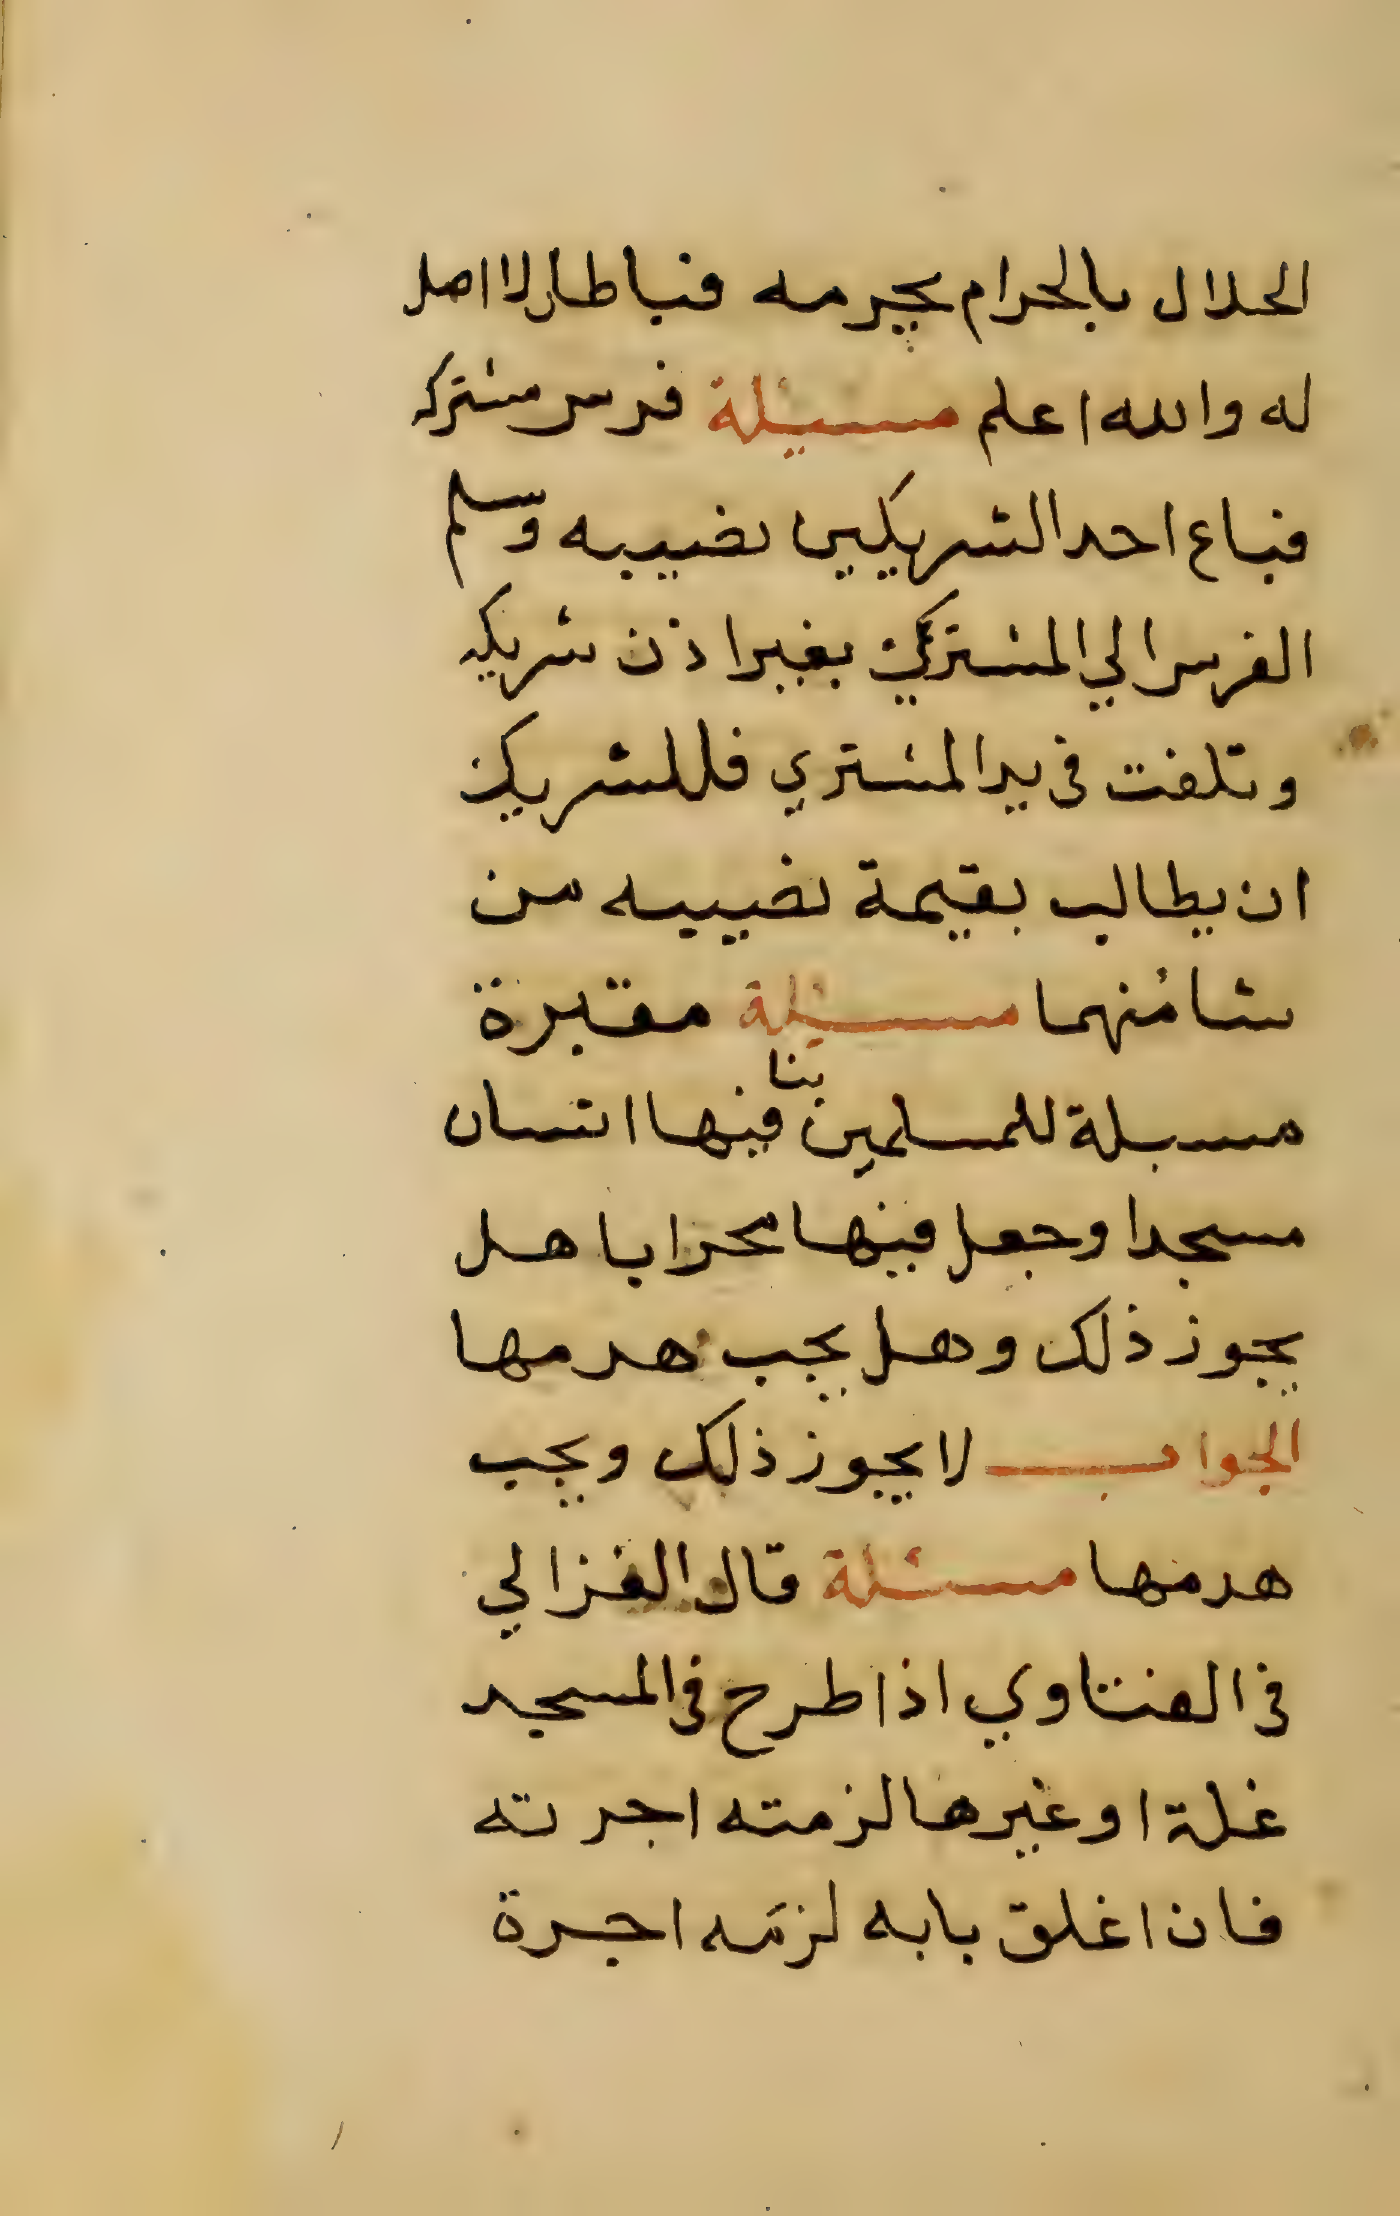 الحلال بالحرام يحرمه فباطل لا اصل
له والله اعلم مسيلة فرس مشتركه
فباع احد الشريكين نصيبه وسلم
الفرس الي المشتركي بغير اذن شريكه
وتلفت في يد المشتري فللشريك
ان يطالب بقيمة نصيبه من
شا منهما مسيلة مقبرة
مسبلة للمسلمين بنا فيها انسان
مسجدا وجعل فيها محرابا هل
يجوز ذلك وهل يجب هدمها
الجواب لا يجوز ذلك ويجب
هدمها مسئلة قال الغزالي
في الفتاوي اذا طرح في المسجد
غلة او غيرها لزمته اجرته
فان اغلق بابه لزمه اجرة